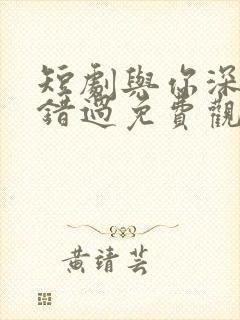 短劇與你深
錯過免費觀
黃靖芸